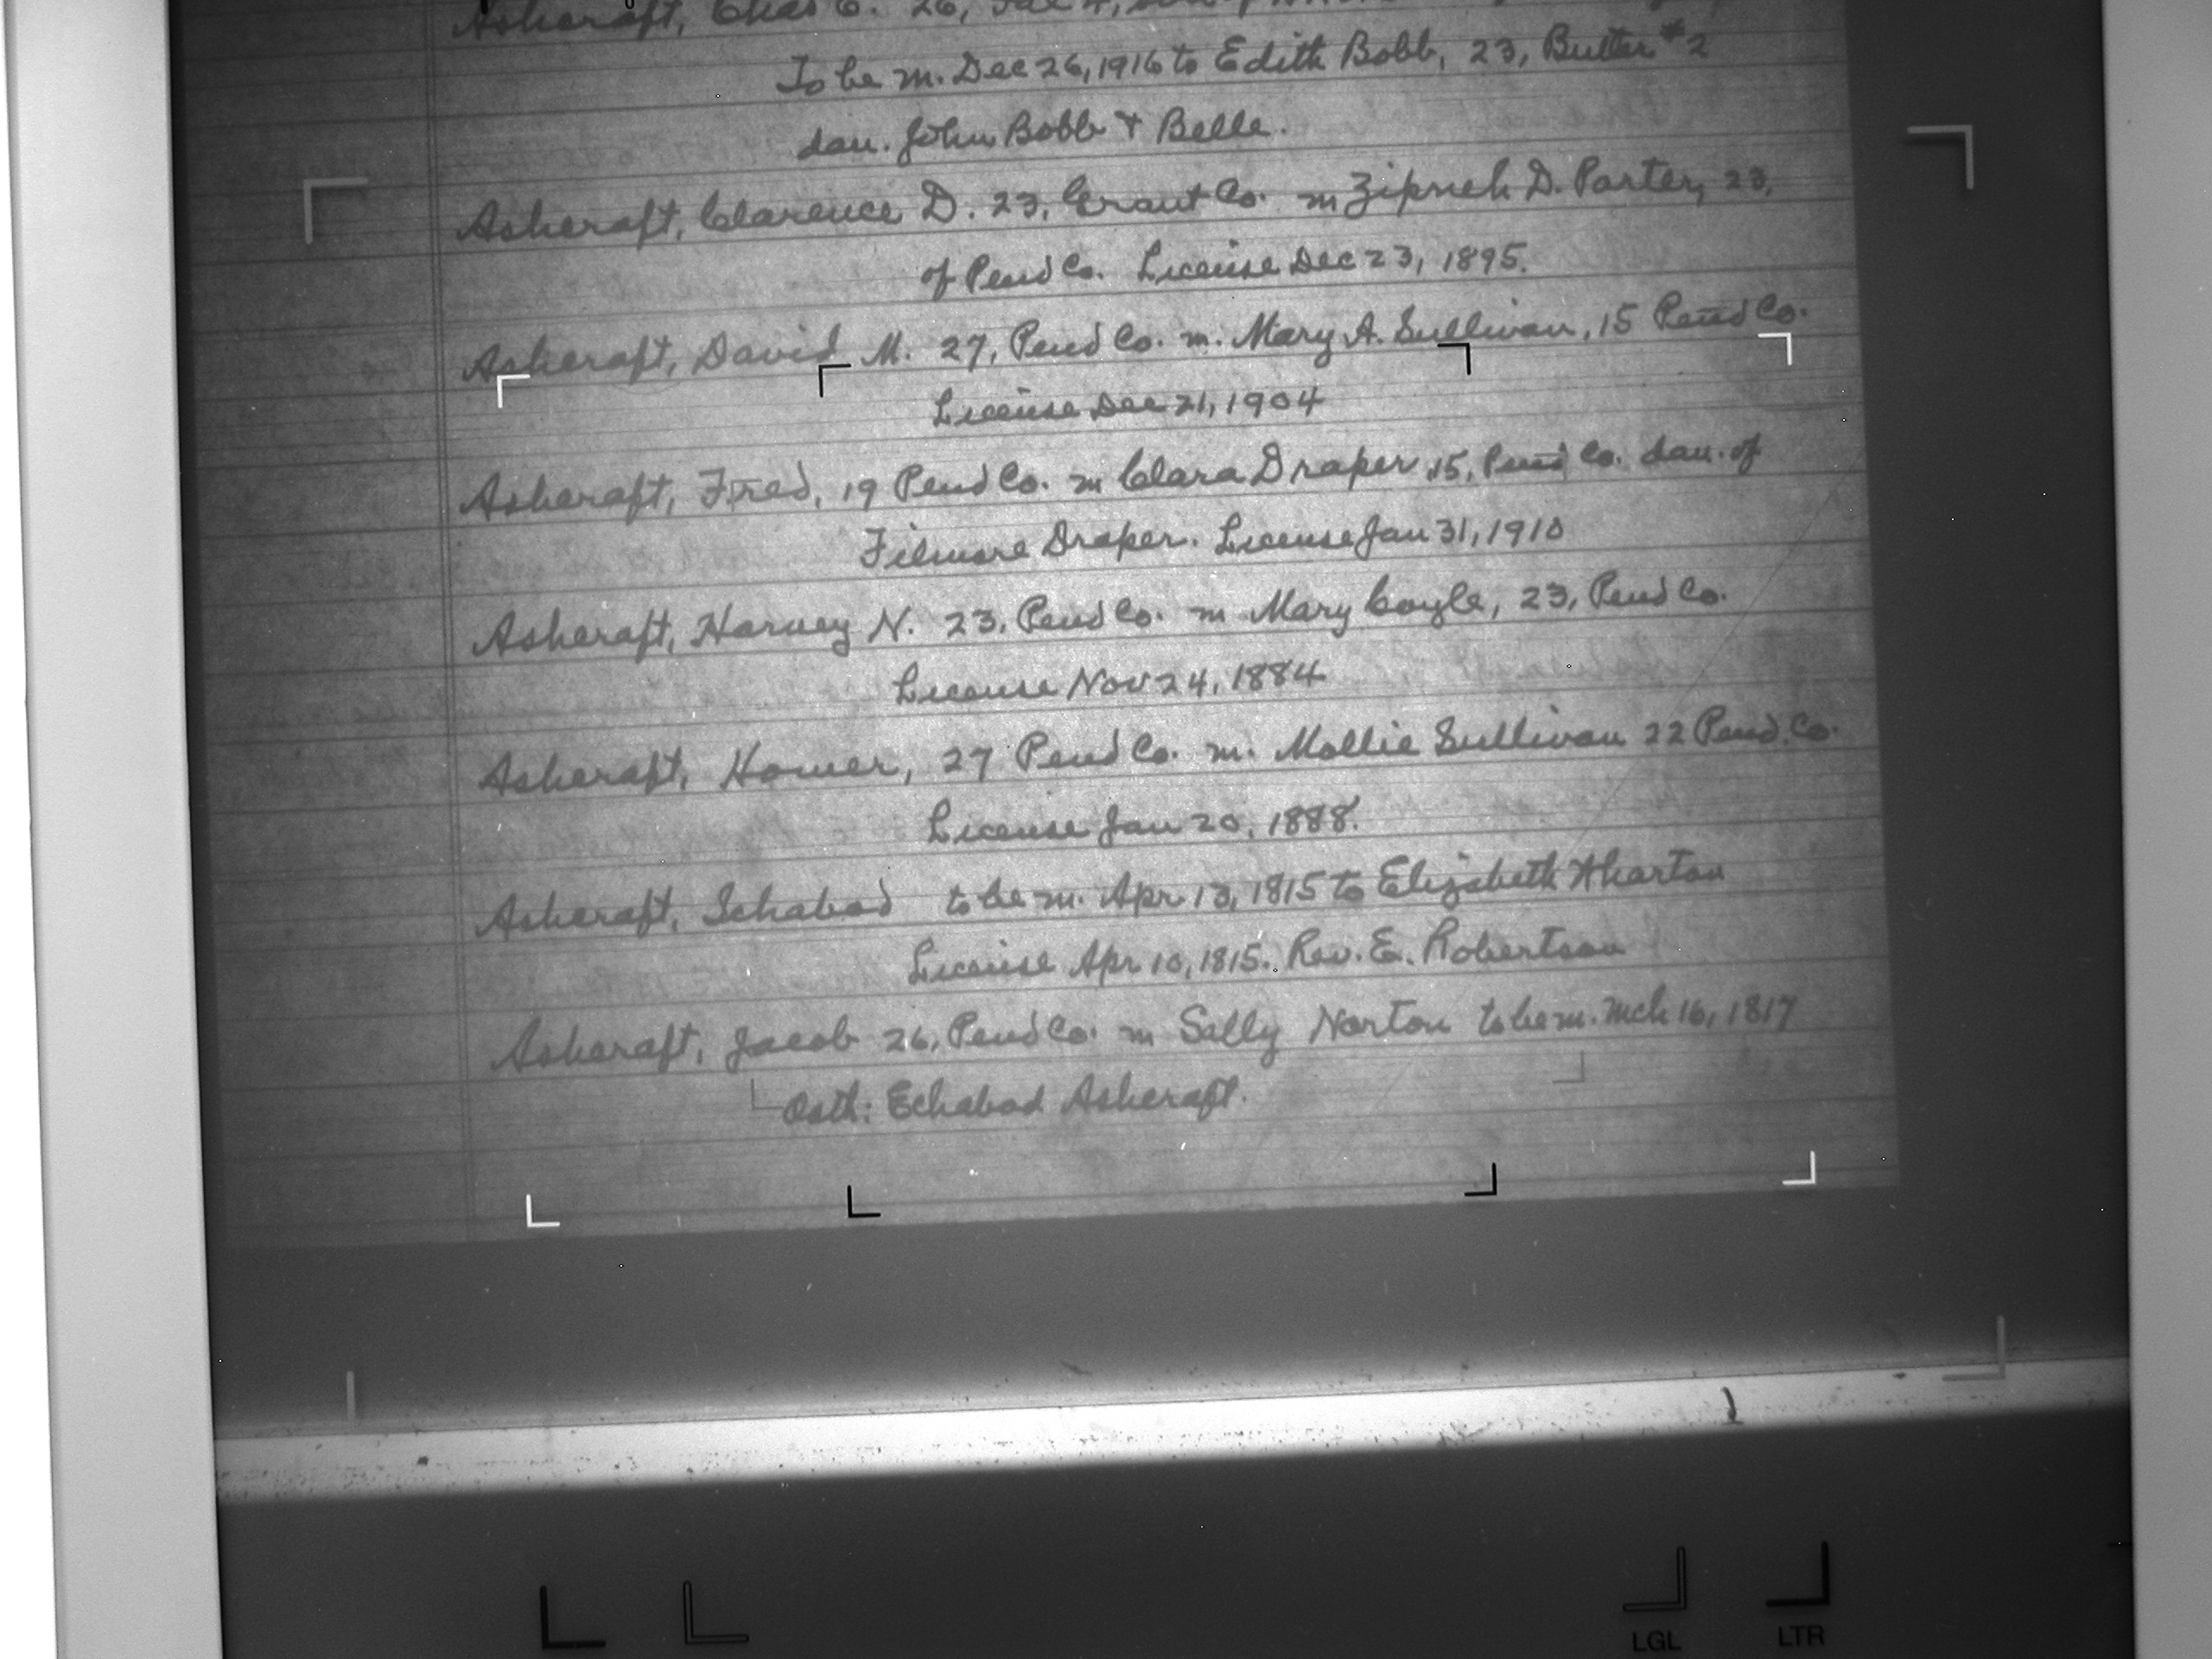 Ashcraft, Chas C. 26,
To be m. Dec 26, 1916 to Edith Bobb, 23, Butler #2
dau. John Bobb & Belle.
Ashcraft, Clarence D. 23, Grant Co. m Zipneh D. Porter, 23,
of Pend Co. License Dec 23, 1895.
Ashcraft, David M. 27, Pend Co. m. Mary A. Sullivan, 15 Pend Co.
License Dec 21, 1904
Ashcraft, Fred, 19 Pend Co. m Clara Draper, 15, Pend Co. dau. of
Filmore Draper. License Jan 31, 1910
Ashcraft, Harvey N. 23, Pend Co. m Mary Coyle, 23, Pend Co.
License Nov 24, 1884
Ashcraft, Homer, 27 Pend Co. m. Mollie Sullivan 22 Pend. Co.
License Jan 20, 1888.
Ashcraft, Ichabod to be m. Apr. 13, 1815 to Elizabeth Wharton
License Apr 10, 1815. Rev. E. Robertson
Ashcraft, Jacob 26, Pend Co. m Sally Norton to be m. Mch 16, 1817
Oath: Echabod Ashcraft.
LGL LTR